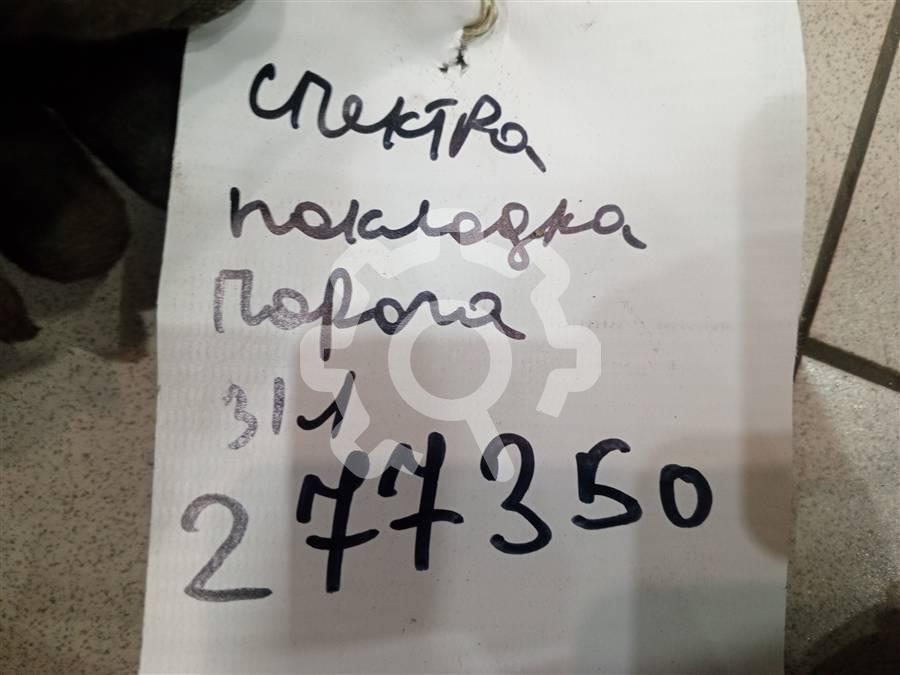 Спектра
накладка
порога
з/л
277350